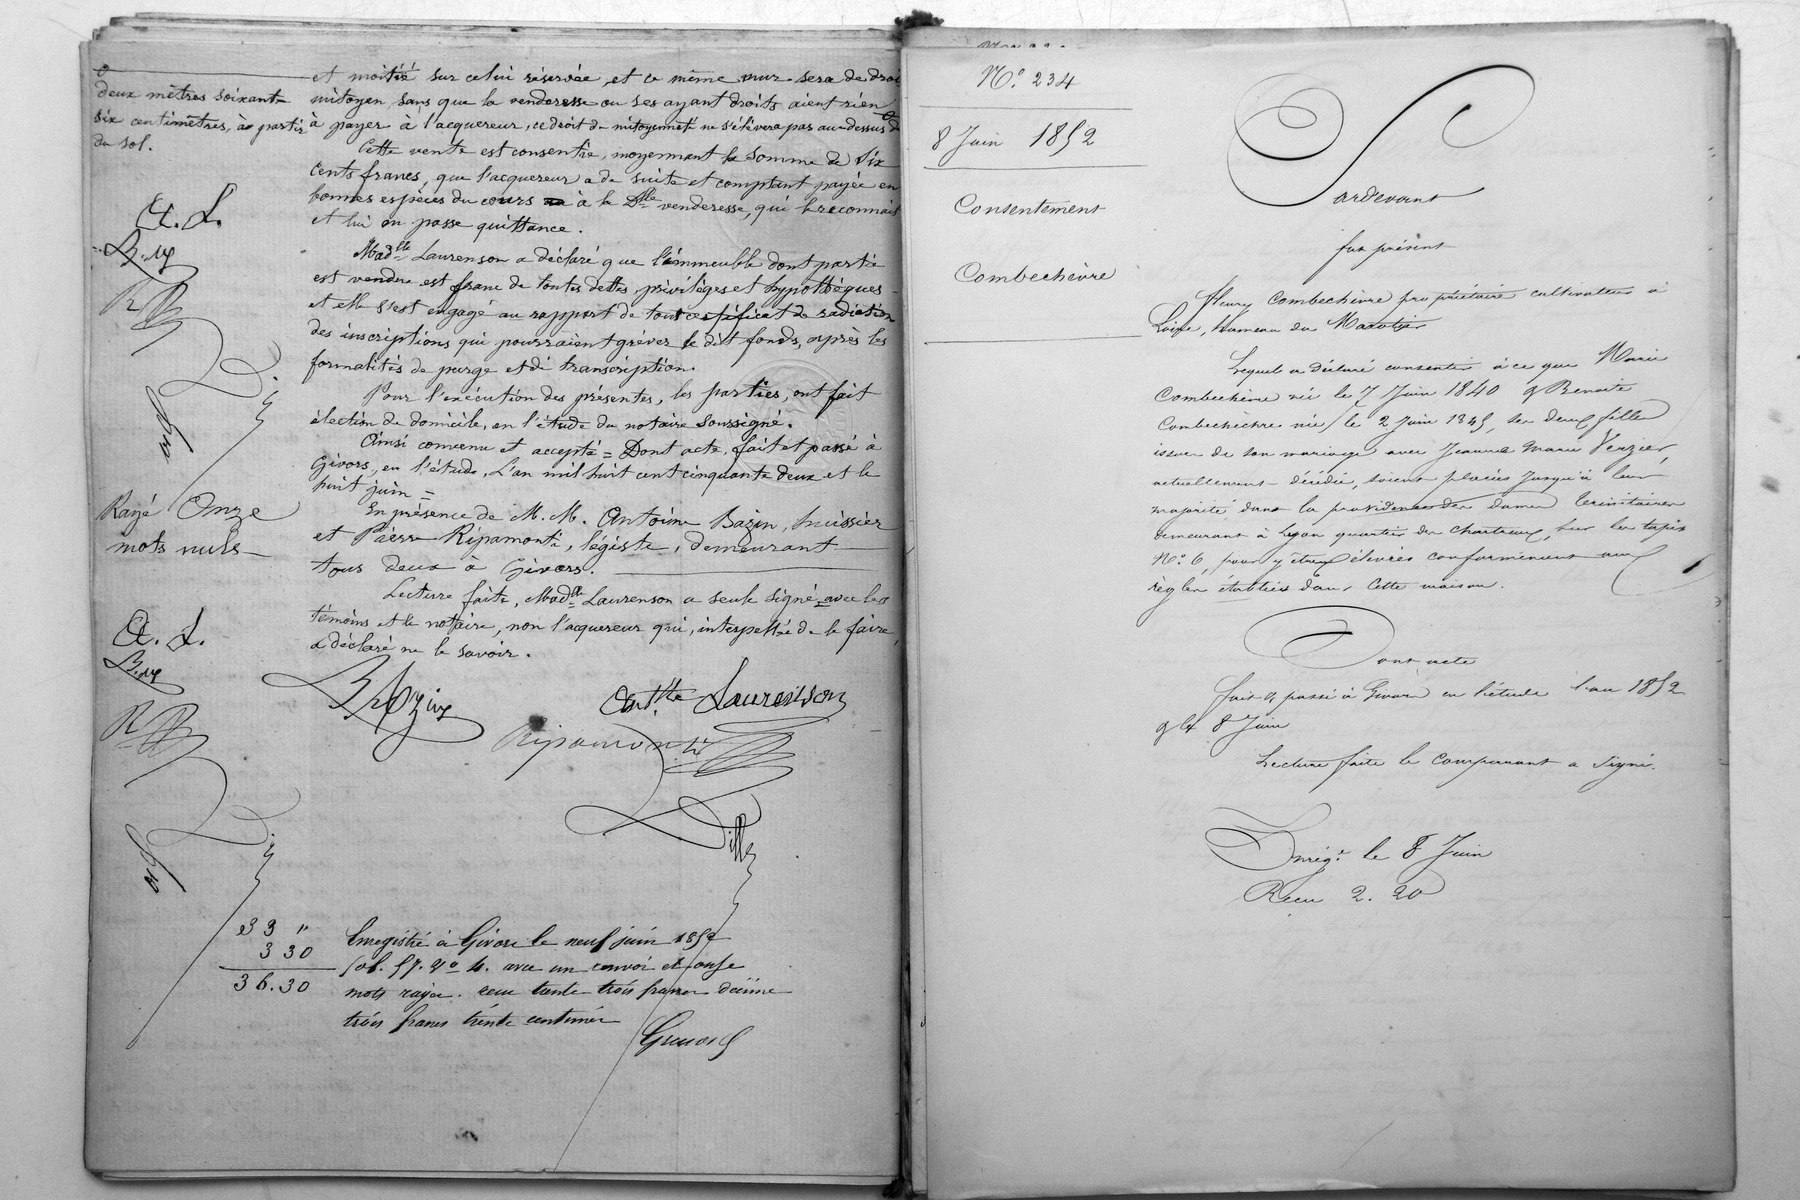 deux mètres soixante
six centimètres, à partir
du sol.
A. L.
Rayé Onze
mots nuls
A. L.
et moitié sur celui réservée, et ce même mur sera de droit
mitoyen, sans que la venderesse ou ses ayant droits aient rien
à payer à l'acquereur, ce droit de mitoyenneté ne s'élèvera pas au-dessus de
Cette vente est consentie, moyennant la somme de six
cents francs, que l'acquereur a de suite et comptant payée en
bonnes espèces du cours à la Dlle venderesse, qui le reconnait
et lui en passe quittance.
Madlle Laurenson a déclaré que l'immeuble dont partie
est vendue est franc de toutes dettes, privilèges et hypothèques
et elle s'est engagé au rapport de tout certificat de radiation
des inscriptions qui pourraient gréver le dit fonds, après les
formalités de purge et de transcription.
Pour l'exécution des présentes, les parties, ont fait
élection de domicile, en l'étude du notaire soussigné.
Ainsi convenu et accepté = Dont acte, fait et passé à
Givors, en l'étude, L'an mil huit cent cinquante deux et le
huit juin =
En présence de M. M. Antoine Bazin, huissier
et Pierre Ripamonti, légiste, demeurant
tous deux à Givors.
Lecture faite, Madlle Laurenson a seule signé avec les
témoins et le notaire, non l'acquereur qui, interpellé de le faire,
a déclaré ne le savoir.
Bazin
Antte Laurenson
Ripamonti
33 "
3 30
36.30
Enregistré à Givors le neuf juin 1852
fol. 57. vo 4. avec un renvoi et onze
mots rayés. reçu trente trois francs décime
trois francs trente centimes
No. 234
8 Juin 1852
Consentement
Combechèvre
Pardevant
fut présent
Henry Combechèvre propriétaire cultivateur à
Loire, hameau du
Lequel a déclaré consentir à ce que Marie
Combechèvre née le 7 Juin 1840 & Benoite
Combechèvre née le 2 Juin 1845, ses deux filles
issues de son mariage avec Jeanne Marie Verzier,
actuellement décédée, soient placées jusqu'à leur
majorité, dans la providence des dames trinitaires
demeurant à Lyon quartier des Chartreux, sur les tapis
No. 6, pour y être élevées conformément aux
règles établies dans cette maison.
Dont acte
fait & passé à Givors en l'étude l'an 1852
& le 8 Juin
Lecture faite le comparant a signé.
Enrégé. le 8 Juin
Reçu 2. 20